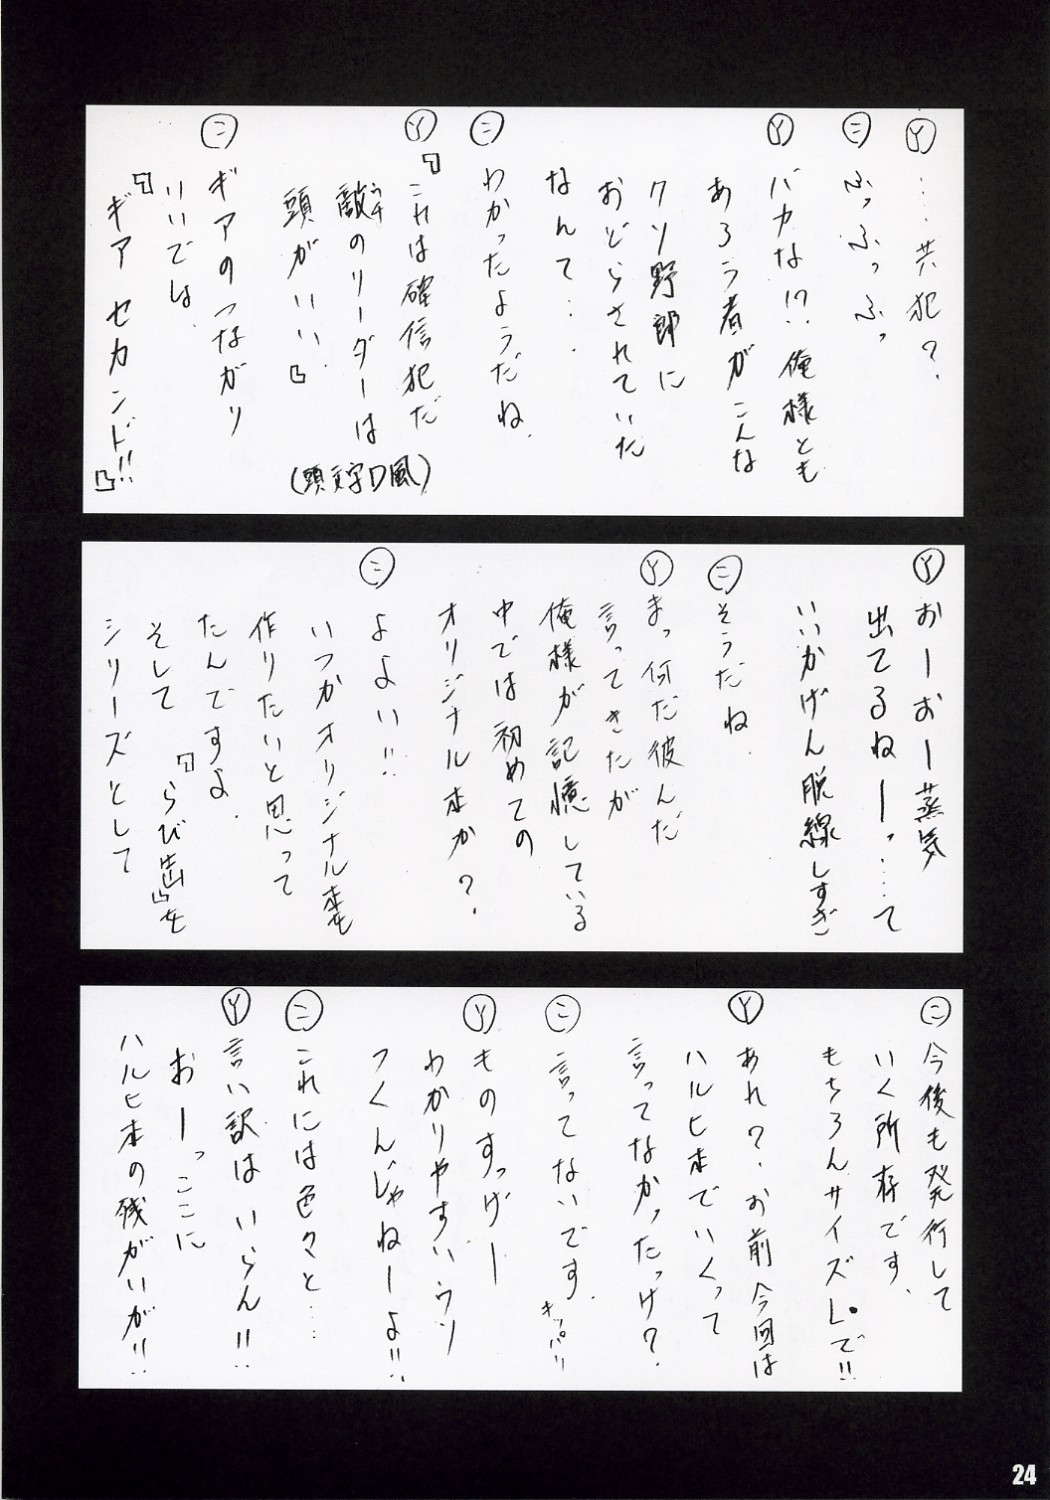 Ⓨ …共犯?
㊁ ふっふっふっ
Ⓨ バカな!?俺様とも
あろう者がこんな
クソ野郎に
おどらされていた
なんて…。
㊁ わかったようだね。
Ⓨ 『これは確信犯だ
敵のリーダーは
頭がいい。』
(頭文字D風)
㊁ ギアのつながり
いいでは、
『ギア セカンド!!』
Ⓨ おーおー蒸気
出てるねーーっ……て
いいかげん脱線しすぎ
㊁ そうだね。
Ⓨ まっ何だ彼んだ
言ってきたが
俺様が記憶している
中では初めての
オリジナル本か?。
㊁ よよい!!
いつかオリジナル本を
作りたいと思って
たんですよ。
そして『らび出』を
シリーズとして
㊁ 今後も発行して
いく所存です。
もちろんサイズLで!!
Ⓨ あれ?。お前今回は
ハルヒ本でいくって
言ってなかったっけ?
㊁ 言ってないです。
キッパリ
Ⓨ ものすっげー
わかりやすいウソ
つくんじゃねーよ!!
㊁ これには色々と…
Ⓨ 言い訳はいらん!!
おーっここに
ハルヒ本の残がいが!!
24